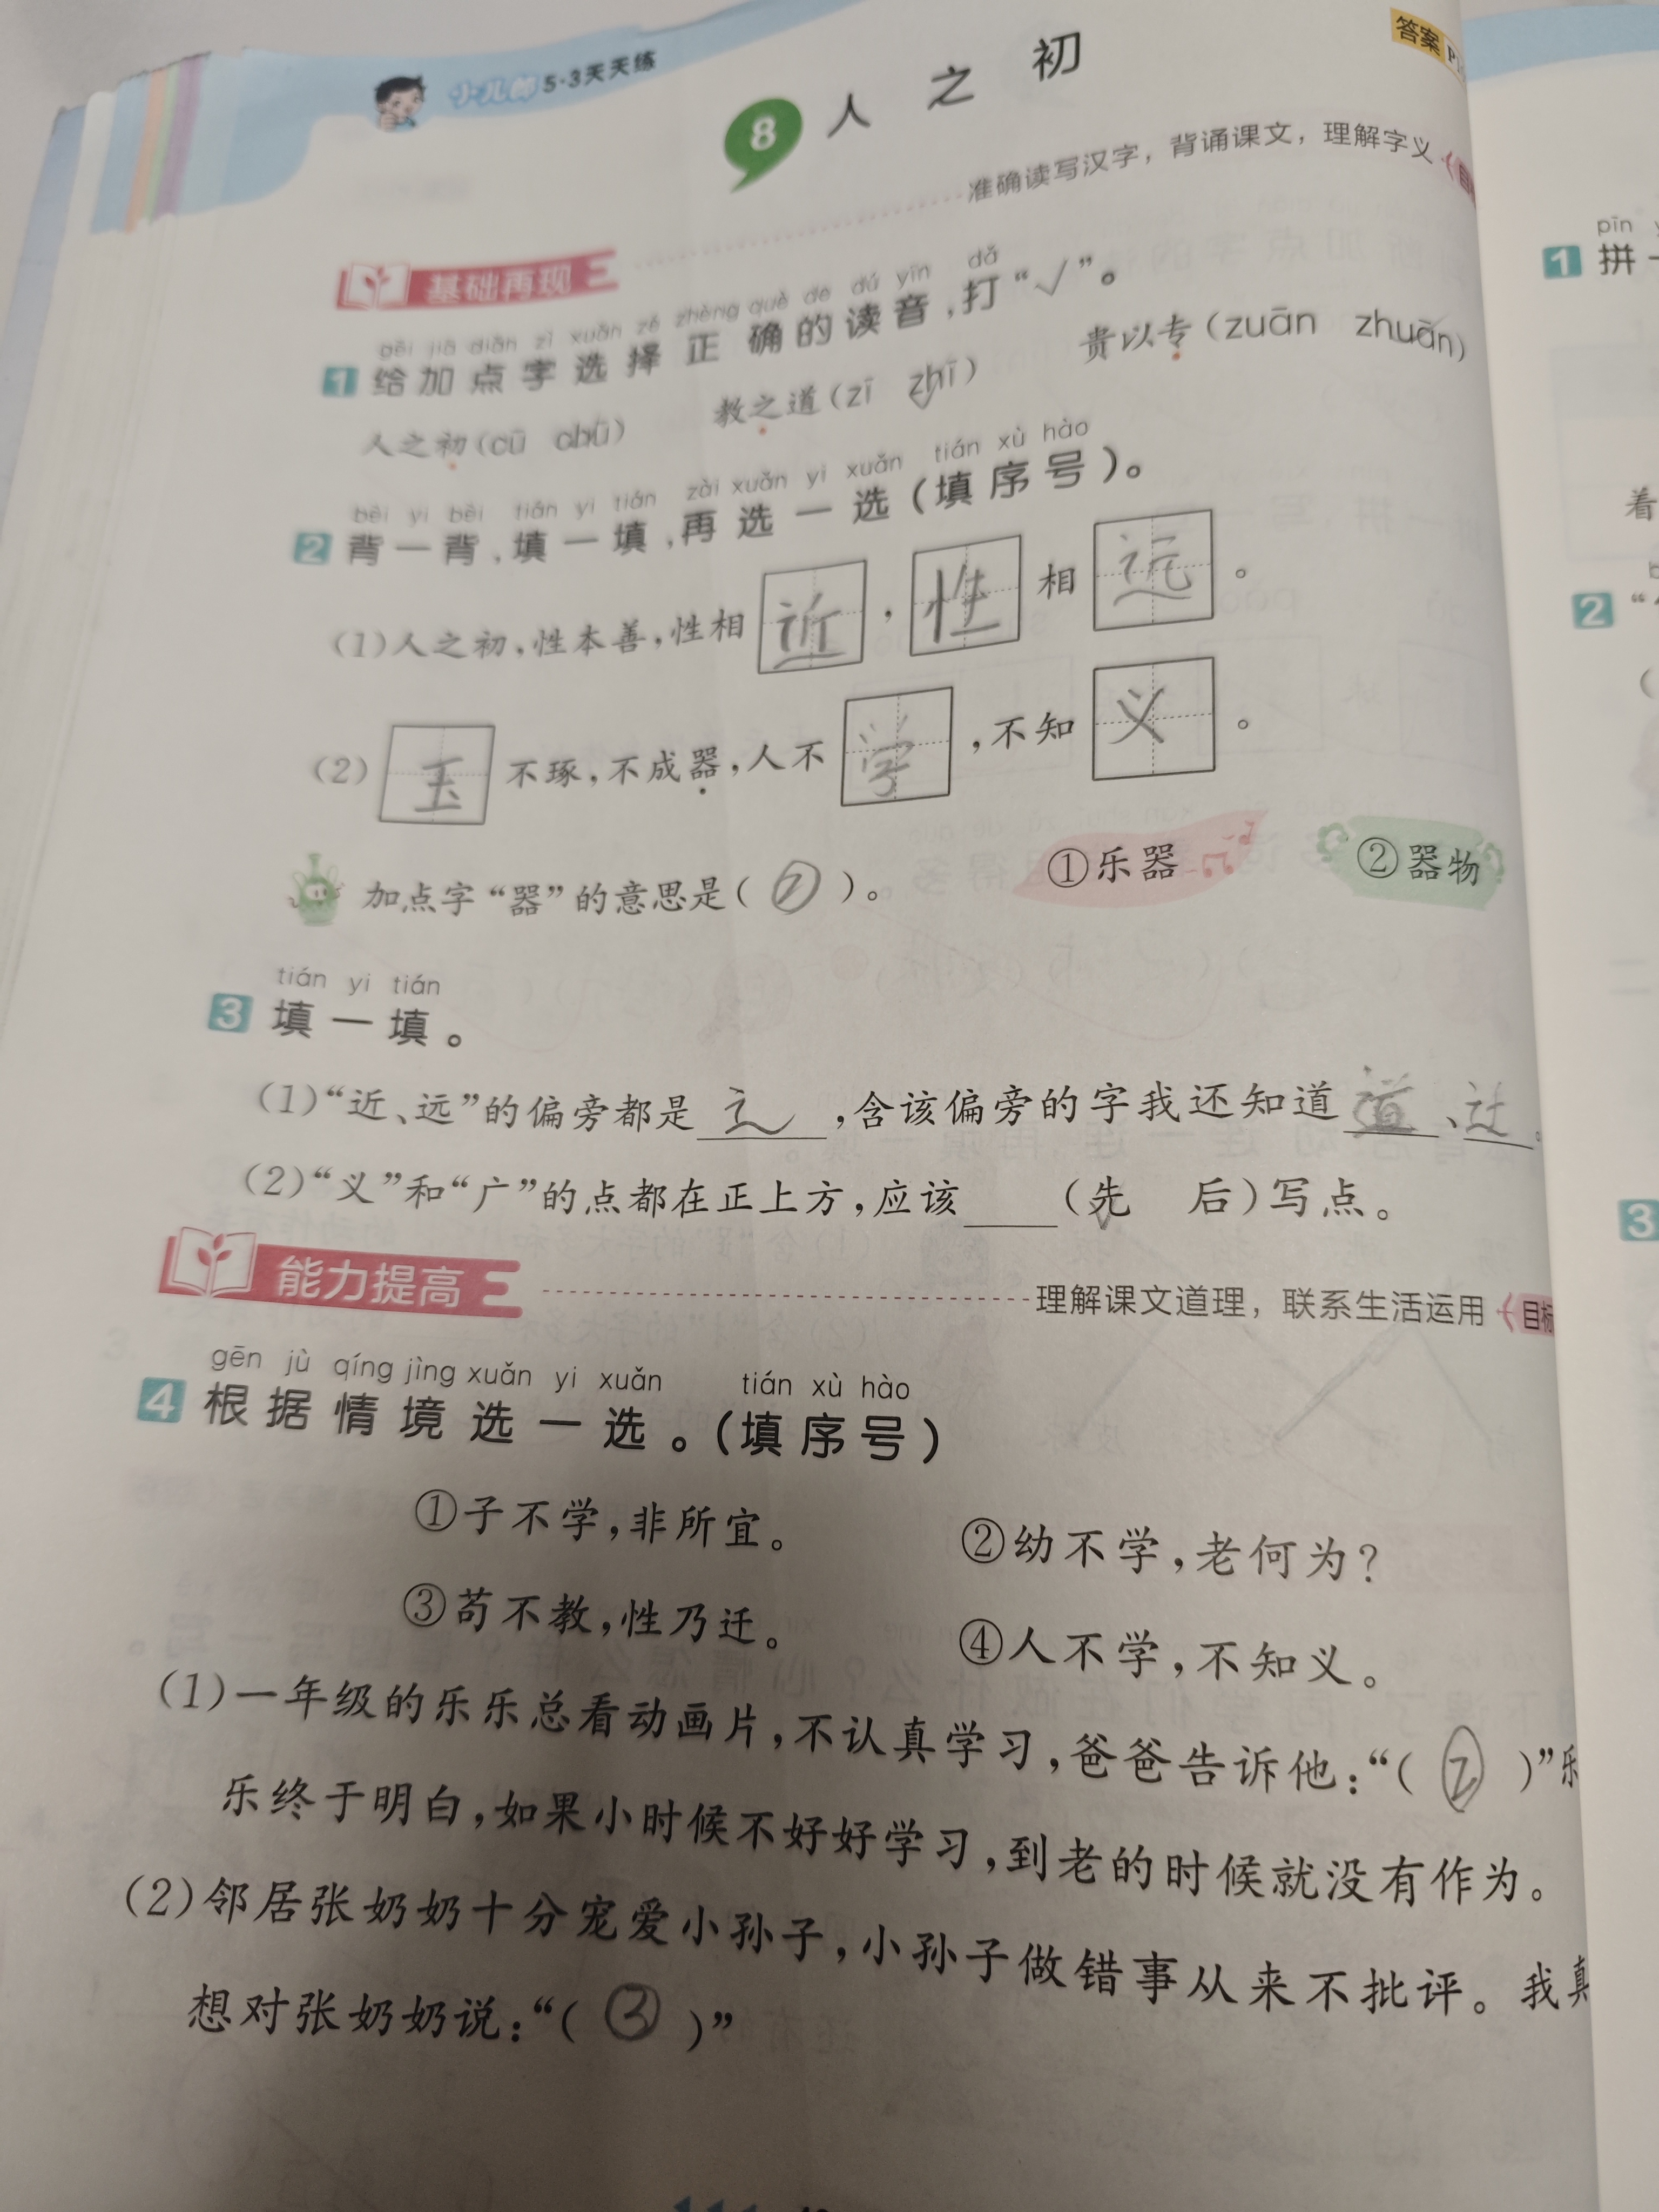 小儿郎 5·3天天练
答案
8 人之初
准确读写汉字，背诵课文，理解字义
基础再现
gěi jiā diǎn zì xuǎn zé zhèng què de dú yīn dǎ
1 给加点字选择正确的读音，打“√”。
人之初（cū chū） 教之道（zī zhī） 贵以专（zuān zhuān）
bèi yi bèi tián yi tián zài xuǎn yi xuǎn tián xù hào
2 背一背，填一填，再选一选（填序号）。
（1）人之初，性本善，性相近，性相远。
（2）玉不琢，不成器，人不学，不知义。
加点字“器”的意思是（②）。 ①乐器 ②器物
tián yi tián
3 填一填。
（1）“近、远”的偏旁都是辶，含该偏旁的字我还知道道、过。
（2）“义”和“广”的点都在正上方，应该____（先√ 后）写点。
能力提高
理解课文道理，联系生活运用 目标
gēn jù qíng jìng xuǎn yi xuǎn tián xù hào
4 根据情境选一选。（填序号）
①子不学，非所宜。 ②幼不学，老何为？
③苟不教，性乃迁。 ④人不学，不知义。
（1）一年级的乐乐总看动画片，不认真学习，爸爸告诉他：“（②）”乐
乐终于明白，如果小时候不好好学习，到老的时候就没有作为。
（2）邻居张奶奶十分宠爱小孙子，小孙子做错事从来不批评。我真
想对张奶奶说：“（③）”
pīn
1 拼一
着
2 “
3